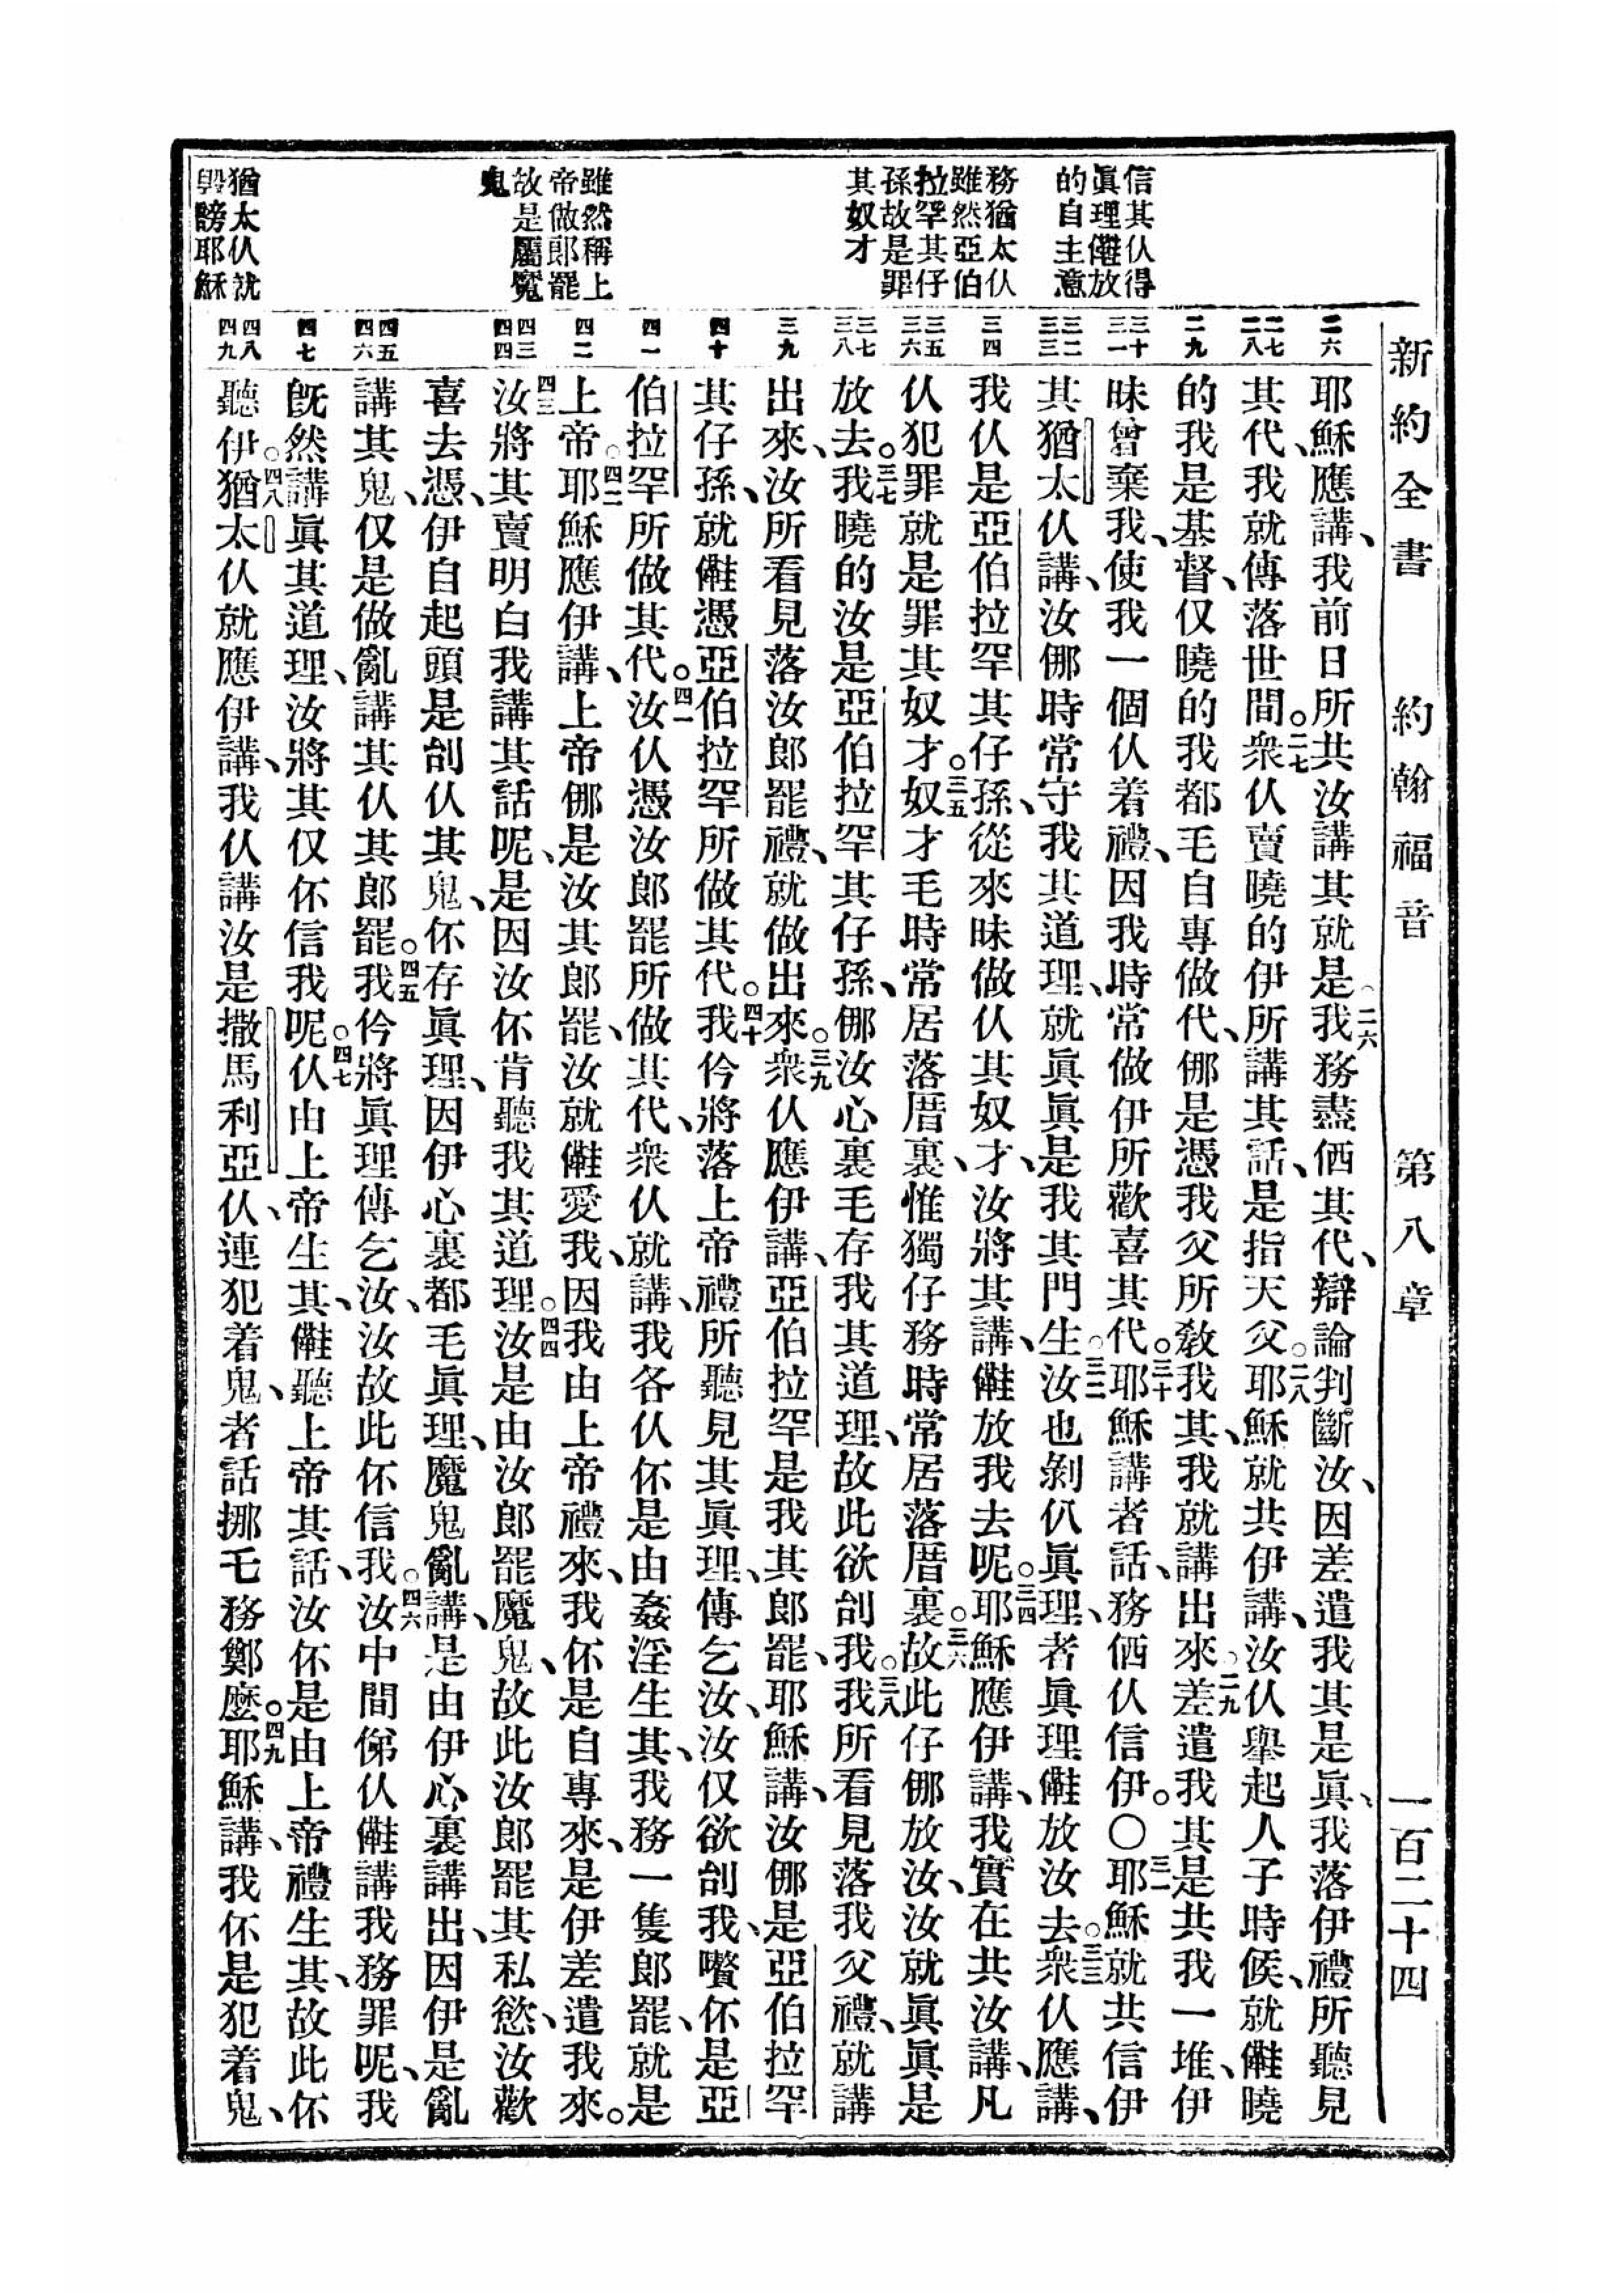 新約全書 約翰福音 第八章 一百二十四
信其仈得
眞理𣍐放
的自主意
務猶太仈
雖然亞伯
拉罕其仔
孫故是罪
其奴才
雖然稱上
帝做郞罷
故是屬魔
鬼
猶太仈就
毀謗耶穌
二六
二七 二八
二九
三十 三一
三二 三三
三四
三五 三六
三七 三八
三九
四十
四一
四二
四三 四四
四五 四六
四七
四八 四九
耶穌應講、我前日所共汝講其就是我○二六務盡価其代、辯論判斷汝、因差遣我其是眞、我落伊禮所聽見
其代、我就傳落世間○二七衆仈賣曉的伊所講其話、是指天父○二八耶穌就共伊講、汝仈舉起人子時候、就曉
的我是基督、仅曉的我都毛自專做代、㑚是憑我父所敎我其、我就講出來○二九差遣我其是共我一堆、伊
昧曾棄我、使我一個仈着禮、因我時常做伊所歡喜其代○三十耶穌講者話、務価仈信伊○〇三一耶穌就共信伊
其猶太仈講、汝㑚時常守我其道理、就眞眞是我其門生○三二汝也剝仈眞理、者眞理放汝去○三三衆仈應講、
我仈是亞伯拉罕其仔孫、從來昧做仈其奴才、汝將其講、放我去呢○三四耶穌應伊講、我實在共汝講、凡
仈犯罪就是罪其奴才○三五奴才毛時常居落厝裏、惟獨仔務時常居落厝裏○三六故此仔㑚放汝、汝就眞眞是
放去○三七我曉的汝是亞伯拉罕其仔孫、㑚汝心裏毛存我其道理、故此欲刣我○三八我所看見落我父禮、就講
出來、汝所看見落汝郞罷禮、就做出來○三九衆仈應伊講、亞伯拉罕是我其郞罷、耶穌講、汝㑚是亞伯拉罕
其仔孫、就憑亞伯拉罕所做其代○四十我伶將落上帝禮所聽見其眞理、傳乞汝、汝仅欲刣我、嚽伓是亞
伯拉罕所做其代○四一汝仈憑汝郞罷所做其代、衆仈就講、我各仈伓是由姦淫生其、我務一隻郞罷、就是
上帝○四二耶穌應伊講、上帝㑚是汝其郞罷、汝就愛我、因我由上帝禮來、我伓是自專來、是伊差遣我來○
四三汝將其賣明白我講其話呢、是因汝伓肯聽我其道理○四四汝是由汝郞罷魔鬼、故此汝郞罷其私慾、汝歡
喜去憑、伊自起頭是刣仈其鬼、伓存眞理、因伊心裏都毛眞理、魔鬼亂講、是由伊心裏講出、因伊是亂
講其鬼、仅是做亂講其仈其郞罷○四五我伶將眞理傳乞汝、汝故此伓信我○四六汝中間㑚仈講我務罪呢、我
旣然講眞其道理、汝將其仅伓信我呢○四七仈由上帝生其、聽上帝其話、汝伓是由上帝禮生其、故此伓
聽伊○四八猶太仈就應伊講、我仈講汝是撒馬利亞仈、連犯着鬼、者話挪毛務鄭麽○四九耶穌講、我伓是犯着鬼、